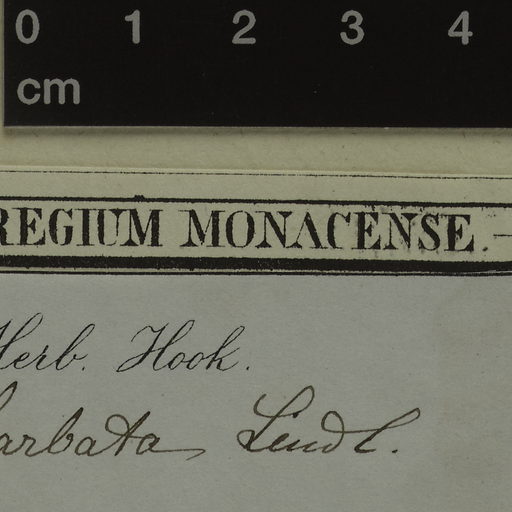 0 1 2 3 4
cm
REGIUM MONACENSE.
Herb. Hook.
barbata Lindl.